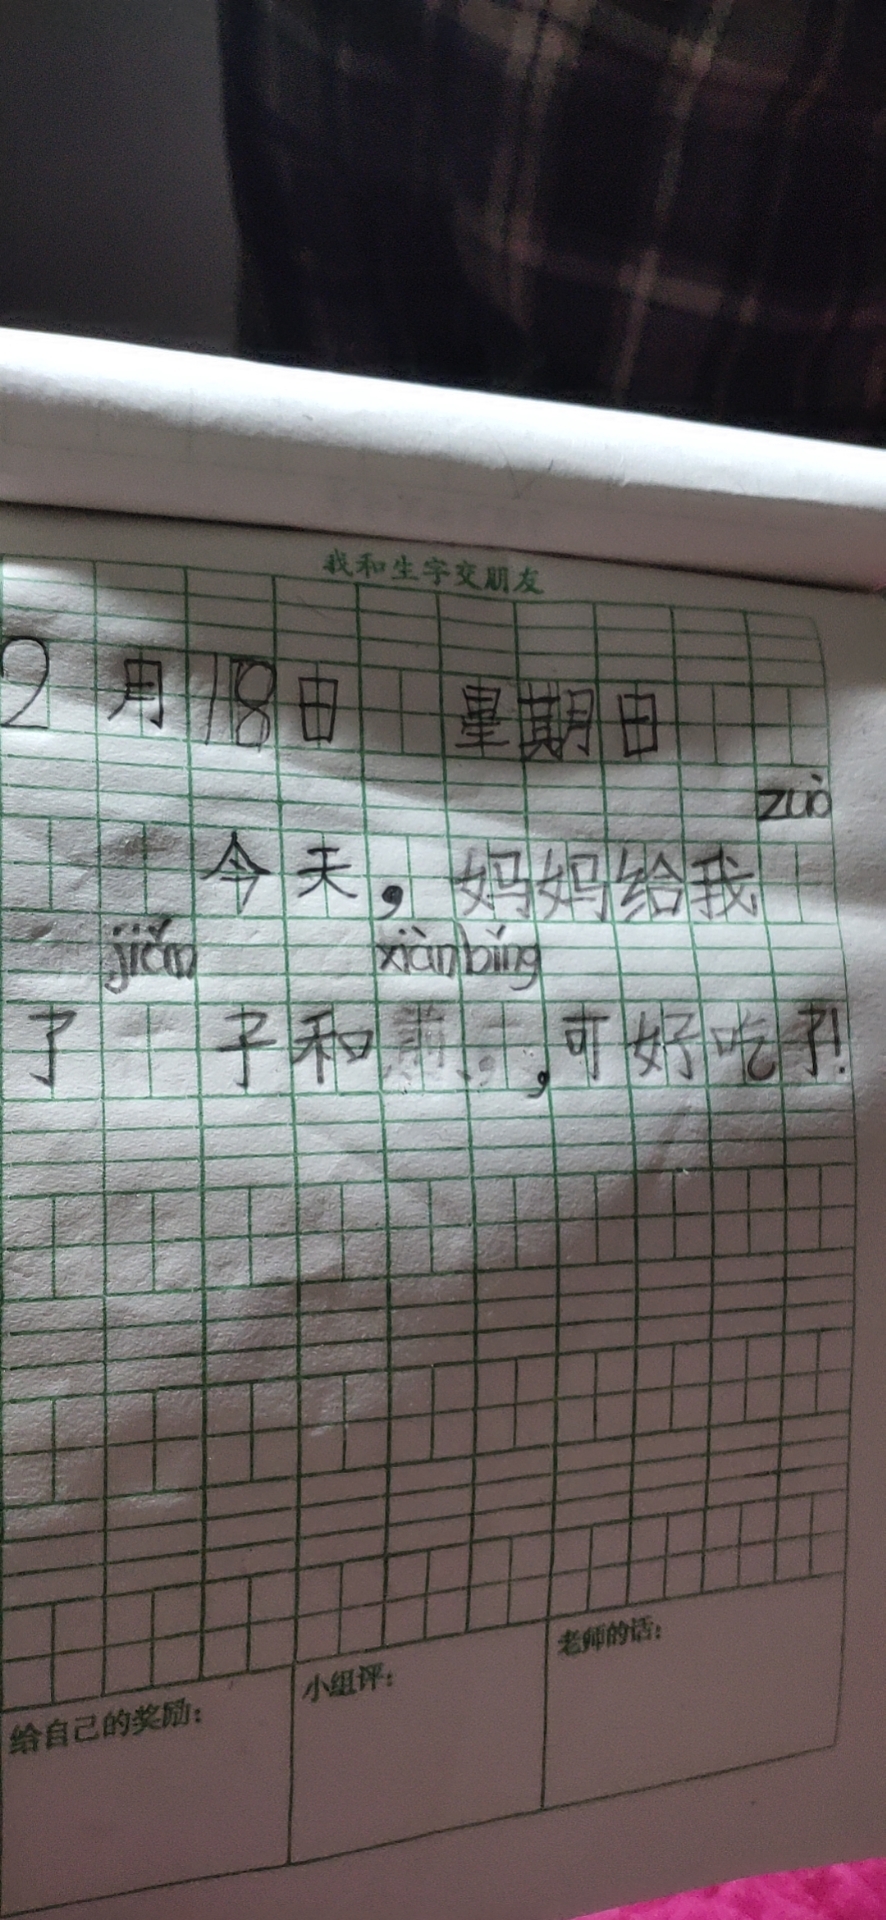 我和生字交朋友
2月18日 星期日
zuò
今天，妈妈给我
jiǎn xiànbǐng
了 子和 ，可好吃了!
给自己的奖励：
小组评：
老师的话：